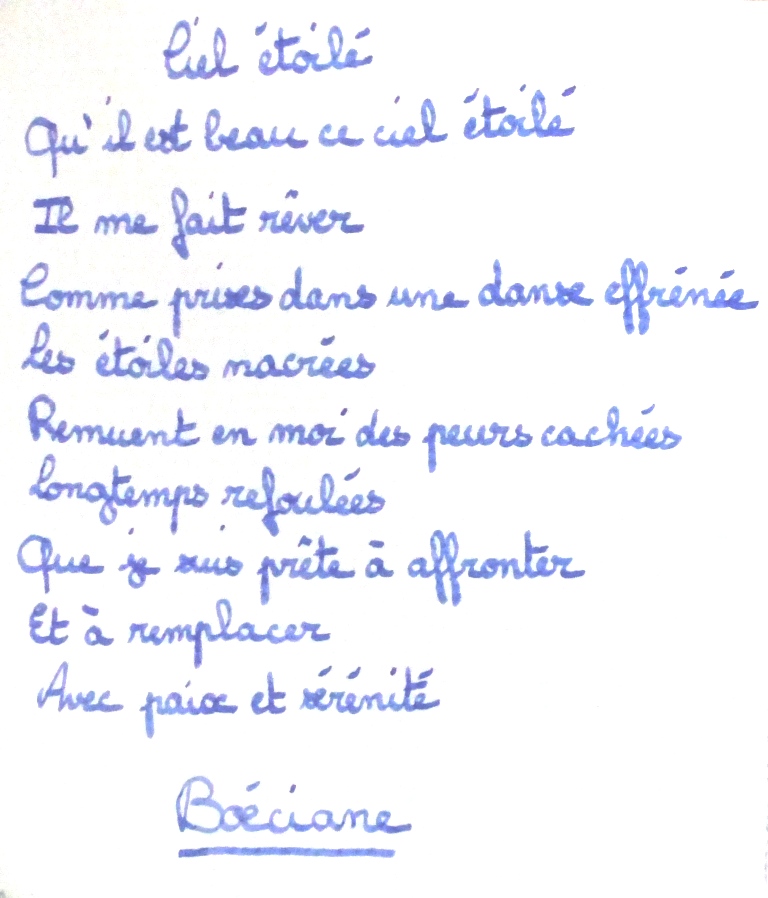 Ciel étoilé
Qu'il est beau ce ciel étoilé
Il me fait rêver
Comme prises dans une danse effrénée
Les étoiles nacrées
Remuent en moi des peurs cachées
Longtemps refoulées
Que je suis prête à affronter
Et à remplacer
Avec paix et sérénité
Boéciane